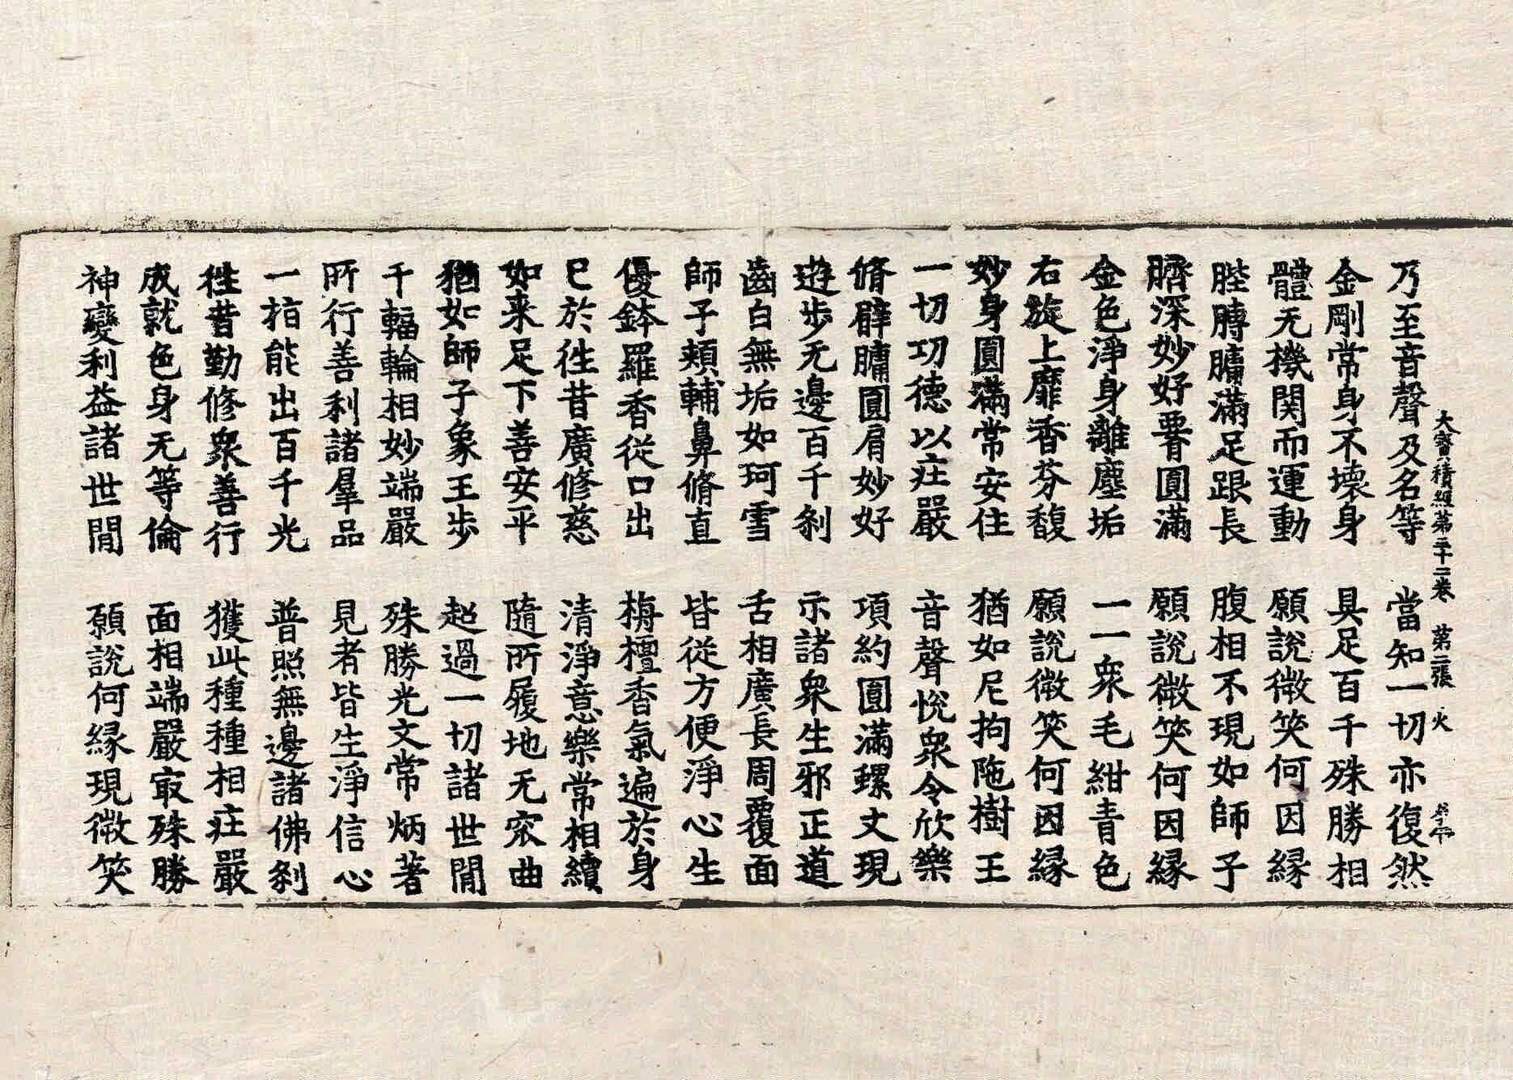 大寶積經第三十二卷　第二張　火
乃至音聲及名等　當知一切亦復然
金剛常身不壞身　具足百千殊勝相
體无機関而運動　願說微笑何因縁
䏶膞𦟛滿足跟長　腹相不現如師子
臍深妙好臋圓滿　願說微笑何因縁
金色淨身離塵垢　一一衆毛紺青色
右旋上靡香芬馥　願說微笑何因縁
妙身圓滿常安住　猶如尼拘陁樹王
一切功德以庄嚴　音聲恱衆令欣樂
脩臂𦟛圓肩妙好　項約圓滿螺文現
遊步无邊百千剎　示諸衆生邪正道
齒白無垢如珂雪　舌相廣長周覆面
師子頰輔鼻脩直　皆従方便淨心生
優鉢羅香従口出　栴檀香氣遍於身
已於徃昔廣修慈　清淨意樂常相續
如来足下善安平　隨所履地无㝐曲
猶如師子象王步　超過一切諸世間
千輻輪相妙端嚴　殊勝光文常炳著
所行善利諸羣品　見者皆生淨信心
一相能出百千光　普照無邊諸佛剎
徃昔勤修衆善行　獲此種種相庄嚴
成就色身无等倫　面相端嚴㝡殊勝
神變利益諸世間　願說何縁現微笑